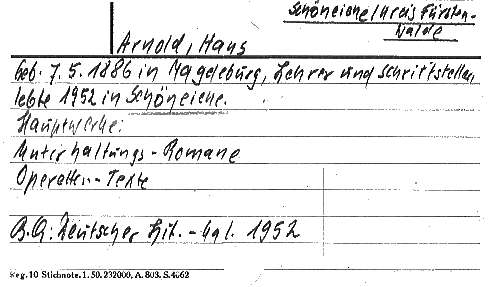 Schöneiche/Kreis Fürsten-
walde
Arnold, Hans
Geb. 7.5.1886 in Magdeburg, Lehrer und Schriftsteller,
lebte 1952 in Schöneiche.
Hauptwerke:
Unterhaltungs-Romane
Operetten-Texte
B.Q: Deutscher Lit.-Kal. 1952
Reg. 10 Stichnote. 1. 50. 232000, A. 803. S. 4662